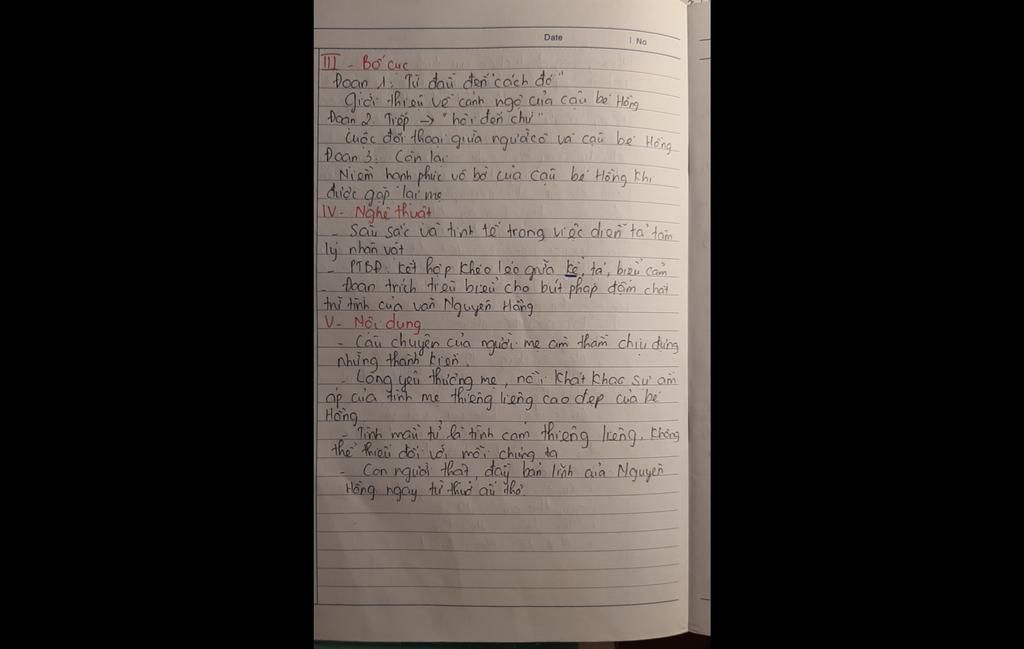 Date | No
III - Bố cục
Đoạn 1: Từ đầu đến "cách đó"
Giới thiệu về cảnh ngộ của cậu bé Hồng
Đoạn 2. Tiếp → "hỏi đến chứ"
Cuộc đối thoại giữa người cô và cậu bé Hồng
Đoạn 3: Còn lại
Niềm hạnh phúc vô bờ của cậu bé Hồng khi
được gặp lại mẹ
IV- Nghệ thuật
- Sâu sắc và tinh tế trong việc diễn tả tâm
lý nhân vật
- PTBĐ: kết hợp khéo léo giữa kể, tả, biểu cảm
- Đoạn trích tiêu biểu cho bút pháp đậm chất
trữ tình của văn Nguyên Hồng
V- Nội dung
- Câu chuyện của người mẹ âm thầm chịu đựng
những thành kiến.
- Lòng yêu thương mẹ, nỗi khát khao sự ấm
áp của tình mẹ thiêng liêng cao đẹp của bé
Hồng
- Tình mẫu tử là tình cảm thiêng liêng, không
thể thiếu đối với mỗi chúng ta
- Con người thật, đầy bản lĩnh của Nguyên
Hồng ngay từ thưở ấu thơ.